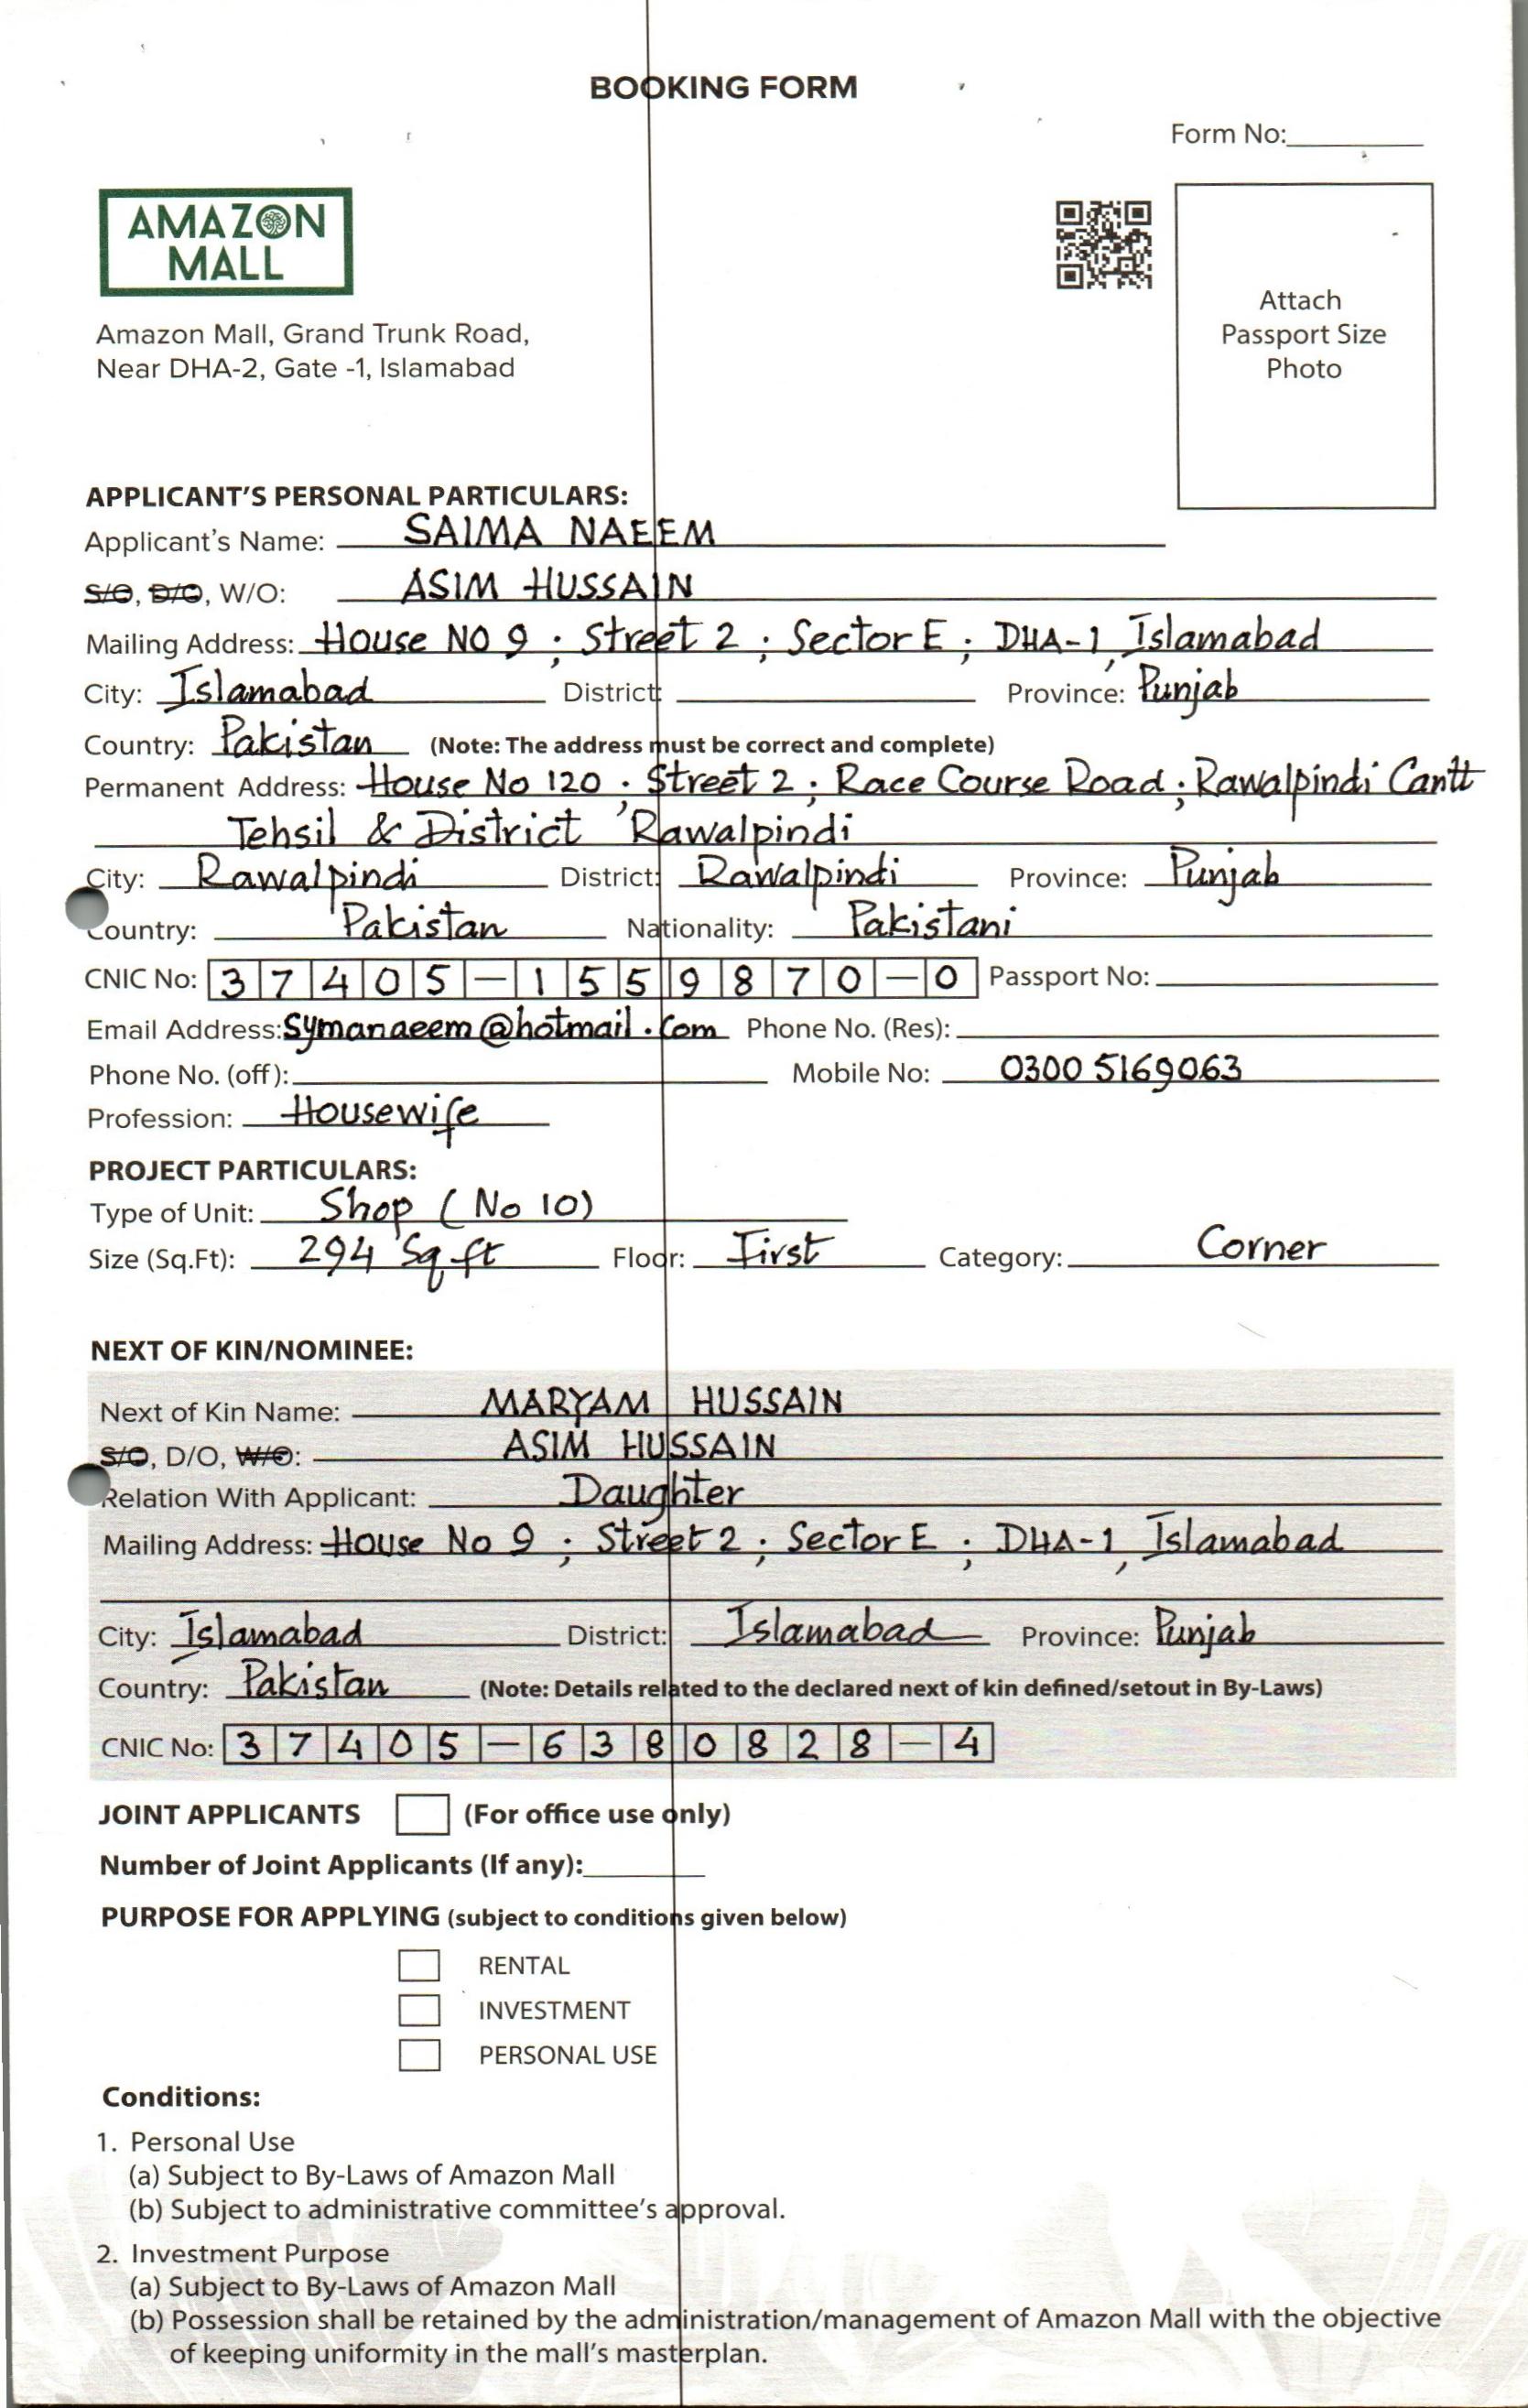 BOOKING FORM
Form No:
AMAZON
MALL
Amazon Mall, Grand Trunk Road,
Near DHA-2, Gate -1, Islamabad
Attach
Passport Size
Photo
APPLICANT'S PERSONAL PARTICULARS:
Applicant's Name: SAIMA NAEEM
S/O, D/O, W/O: ASIM HUSSAIN
Mailing Address: House NO 9 ; Street 2 ; Sector E ; DHA-1, Islamabad
City: Islamabad District: Province: Punjab
Country: Pakistan (Note: The address must be correct and complete)
Permanent Address: House No 120 ; Street 2 ; Race Course Road ; Rawalpindi Cantt
Tehsil & District Rawalpindi
City: Rawalpindi District: Rawalpindi Province: Punjab
Country: Pakistan Nationality: Pakistani
CNIC No: 37405-1559870-0 Passport No:
Email Address: symanaeem@hotmail.com Phone No. (Res):
Phone No. (off): Mobile No: 0300 5169063
Profession: Housewife
PROJECT PARTICULARS:
Type of Unit: Shop (No 10)
Size (Sq.Ft): 294 Sq ft Floor: First Category: Corner
NEXT OF KIN/NOMINEE:
Next of Kin Name: MARYAM HUSSAIN
S/O, D/O, W/O: ASIM HUSSAIN
Relation With Applicant: Daughter
Mailing Address: House No 9 ; Street 2 ; Sector E ; DHA-1, Islamabad
City: Islamabad District: Islamabad Province: Punjab
Country: Pakistan (Note: Details related to the declared next of kin defined/setout in By-Laws)
CNIC No: 37405-6380828-4
JOINT APPLICANTS (For office use only)
Number of Joint Applicants (If any):
PURPOSE FOR APPLYING (subject to conditions given below)
RENTAL
INVESTMENT
PERSONAL USE
Conditions:
1. Personal Use
(a) Subject to By-Laws of Amazon Mall
(b) Subject to administrative committee's approval.
2. Investment Purpose
(a) Subject to By-Laws of Amazon Mall
(b) Possession shall be retained by the administration/management of Amazon Mall with the objective
of keeping uniformity in the mall's masterplan.